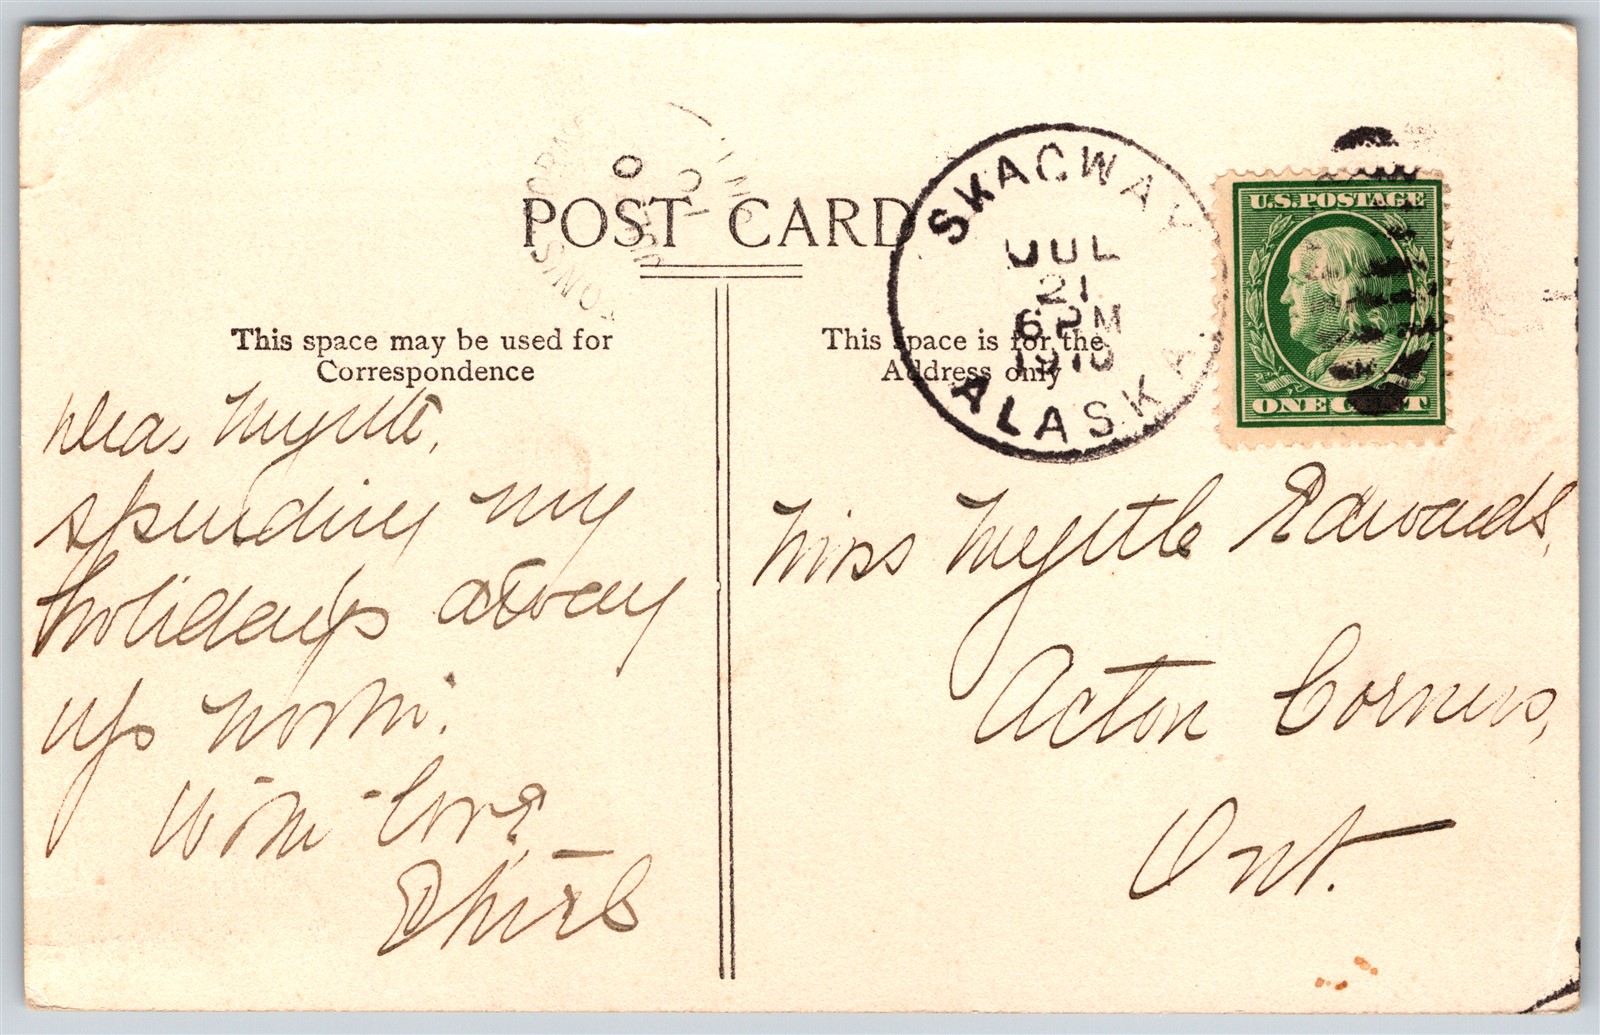 POST CARD
SKAGWAY
JUL
21
6 PM
1910
ALASKA
U.S. POSTAGE
ONE CENT
This space may be used for
Correspondence
This space is for the
Address only
Dear Myrtle,
spending my
holidays away
up north.
With love
Miss Myrtle Edwards,
Acton Corners,
Ont.